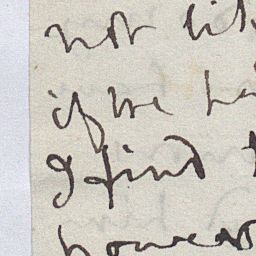 not lik
if we ha
I find t
however